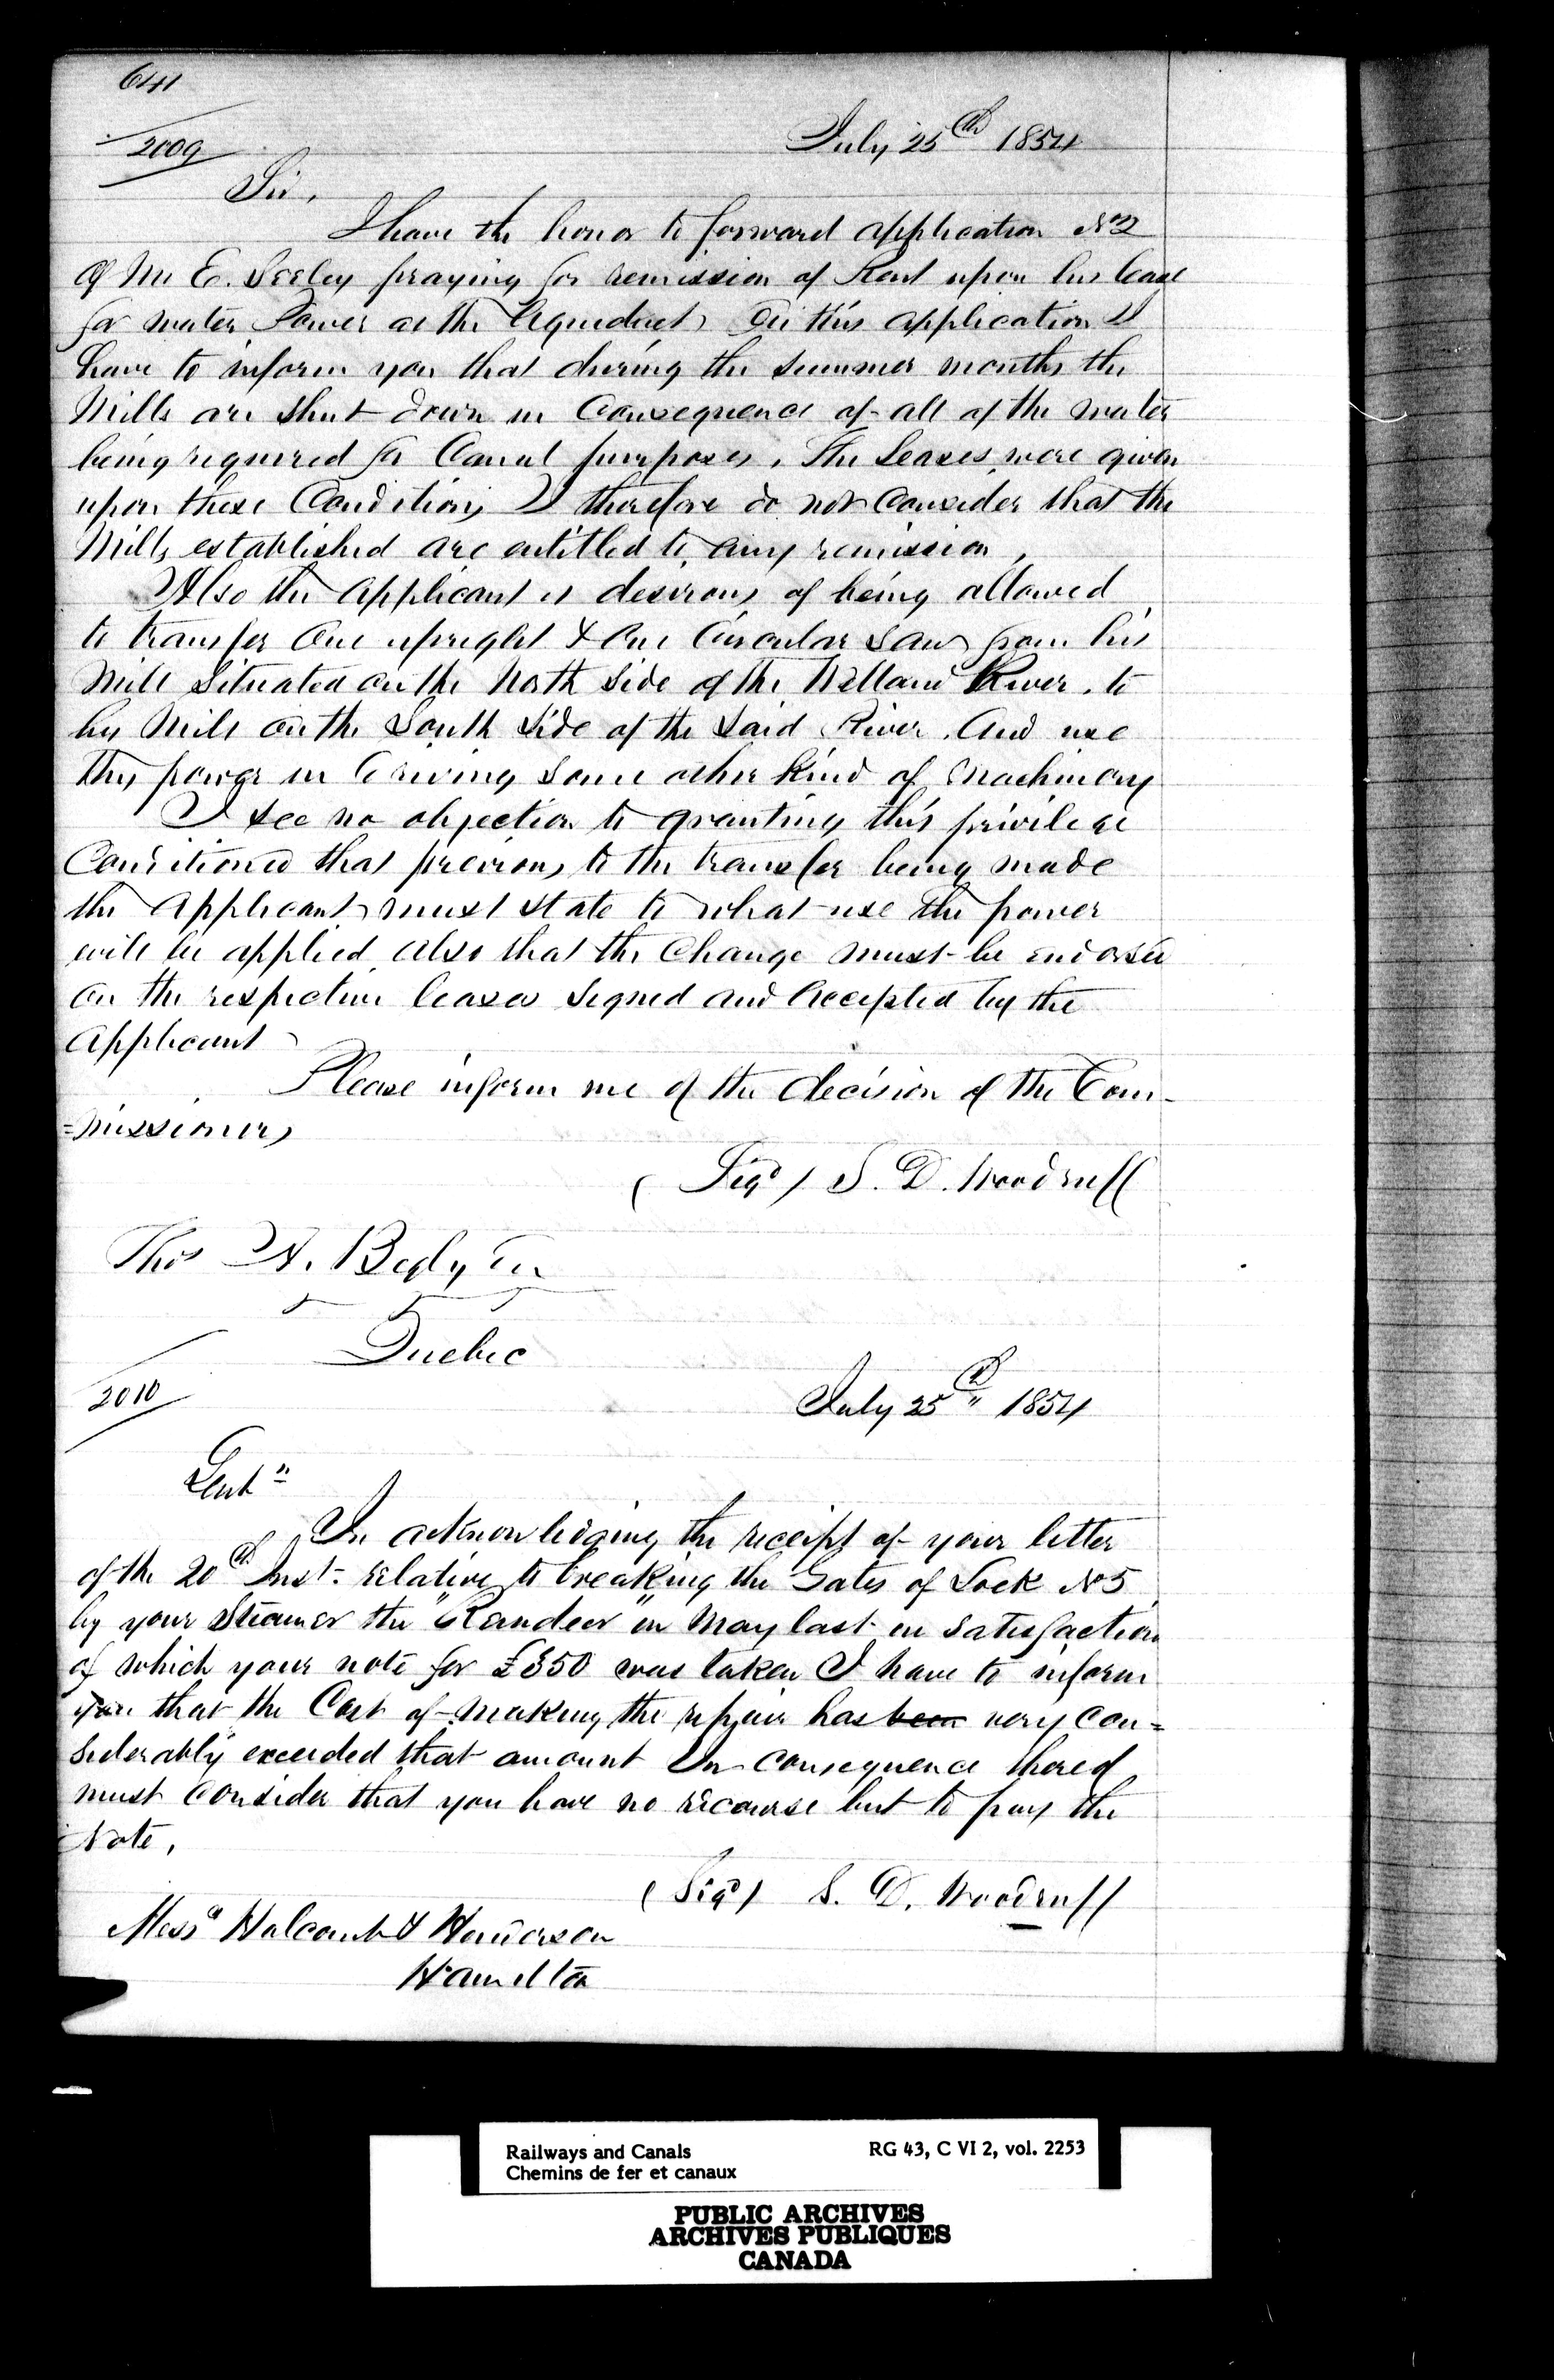 641
2009
July 25th 1854
Sir,
I have the honor to forward application No 2
of Mr E. Seeley praying for remission of Rent upon his lease
for water Power at the Aqueduct On this application I
have to inform you that during the summer months the
Mills are shut down in Consequence of all of the water
being required for Canal purposes. The Leases were given
upon these Conditions I therefore do not Consider that the
Mills established are entitled to any remission,
Also the Applicant is desirous of being allowed
to transfer One upright & One Circular Saw from his
Mill Situated on the North Side of the Welland River, to
his Mill on the South Side of the Said River. And use
this power in driving Some other Kind of Machinery
I see no objection to granting this privilege
Conditioned that previous to the transfer being made
the Applicant must state to what use the power
will be applied, also that the Change must be endorsed
on the respective leases Signed and Accepted by the
Applicant
Please inform me of the decision of the Com-
=missioners
(Sigd) S. D. Woodruff
Thos A. Begly
Quebec
2010
July 25th 1854
Gentn
In acknowledging the receipt of your letter
of the 20th Inst. relative to breaking the Gates of Lock No 5
by your Steamer the "Reindeer" in May last in Satisfaction
of which your note for £350 was taken I have to inform
you that the Cost of making the repair has been very con=
siderably exceeded that amount In consequence thereof
must Consider that you have no recourse but to pay the
Note,
(Sigd) S. D. Woodruff
Messrs Holcomb & Henderson
Hamilton
Railways and Canals
Chemins de fer et canaux
RG 43, C VI 2, vol. 2253
PUBLIC ARCHIVES
ARCHIVES PUBLIQUES
CANADA